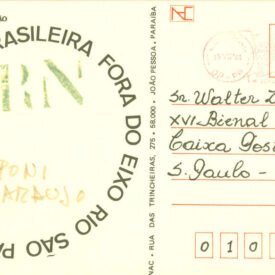 RASILEIRA FORA DO EIXO RIO SÃO PA
RN
PONI
ARAUJO
NAC - RUA DAS TRINCHEIRAS, 275 - 58.000 - JOÃO PESSOA - PARAÍBA
Sr. Walter
XVI Bienal
Caixa Post
S. Paulo -
0 1 0